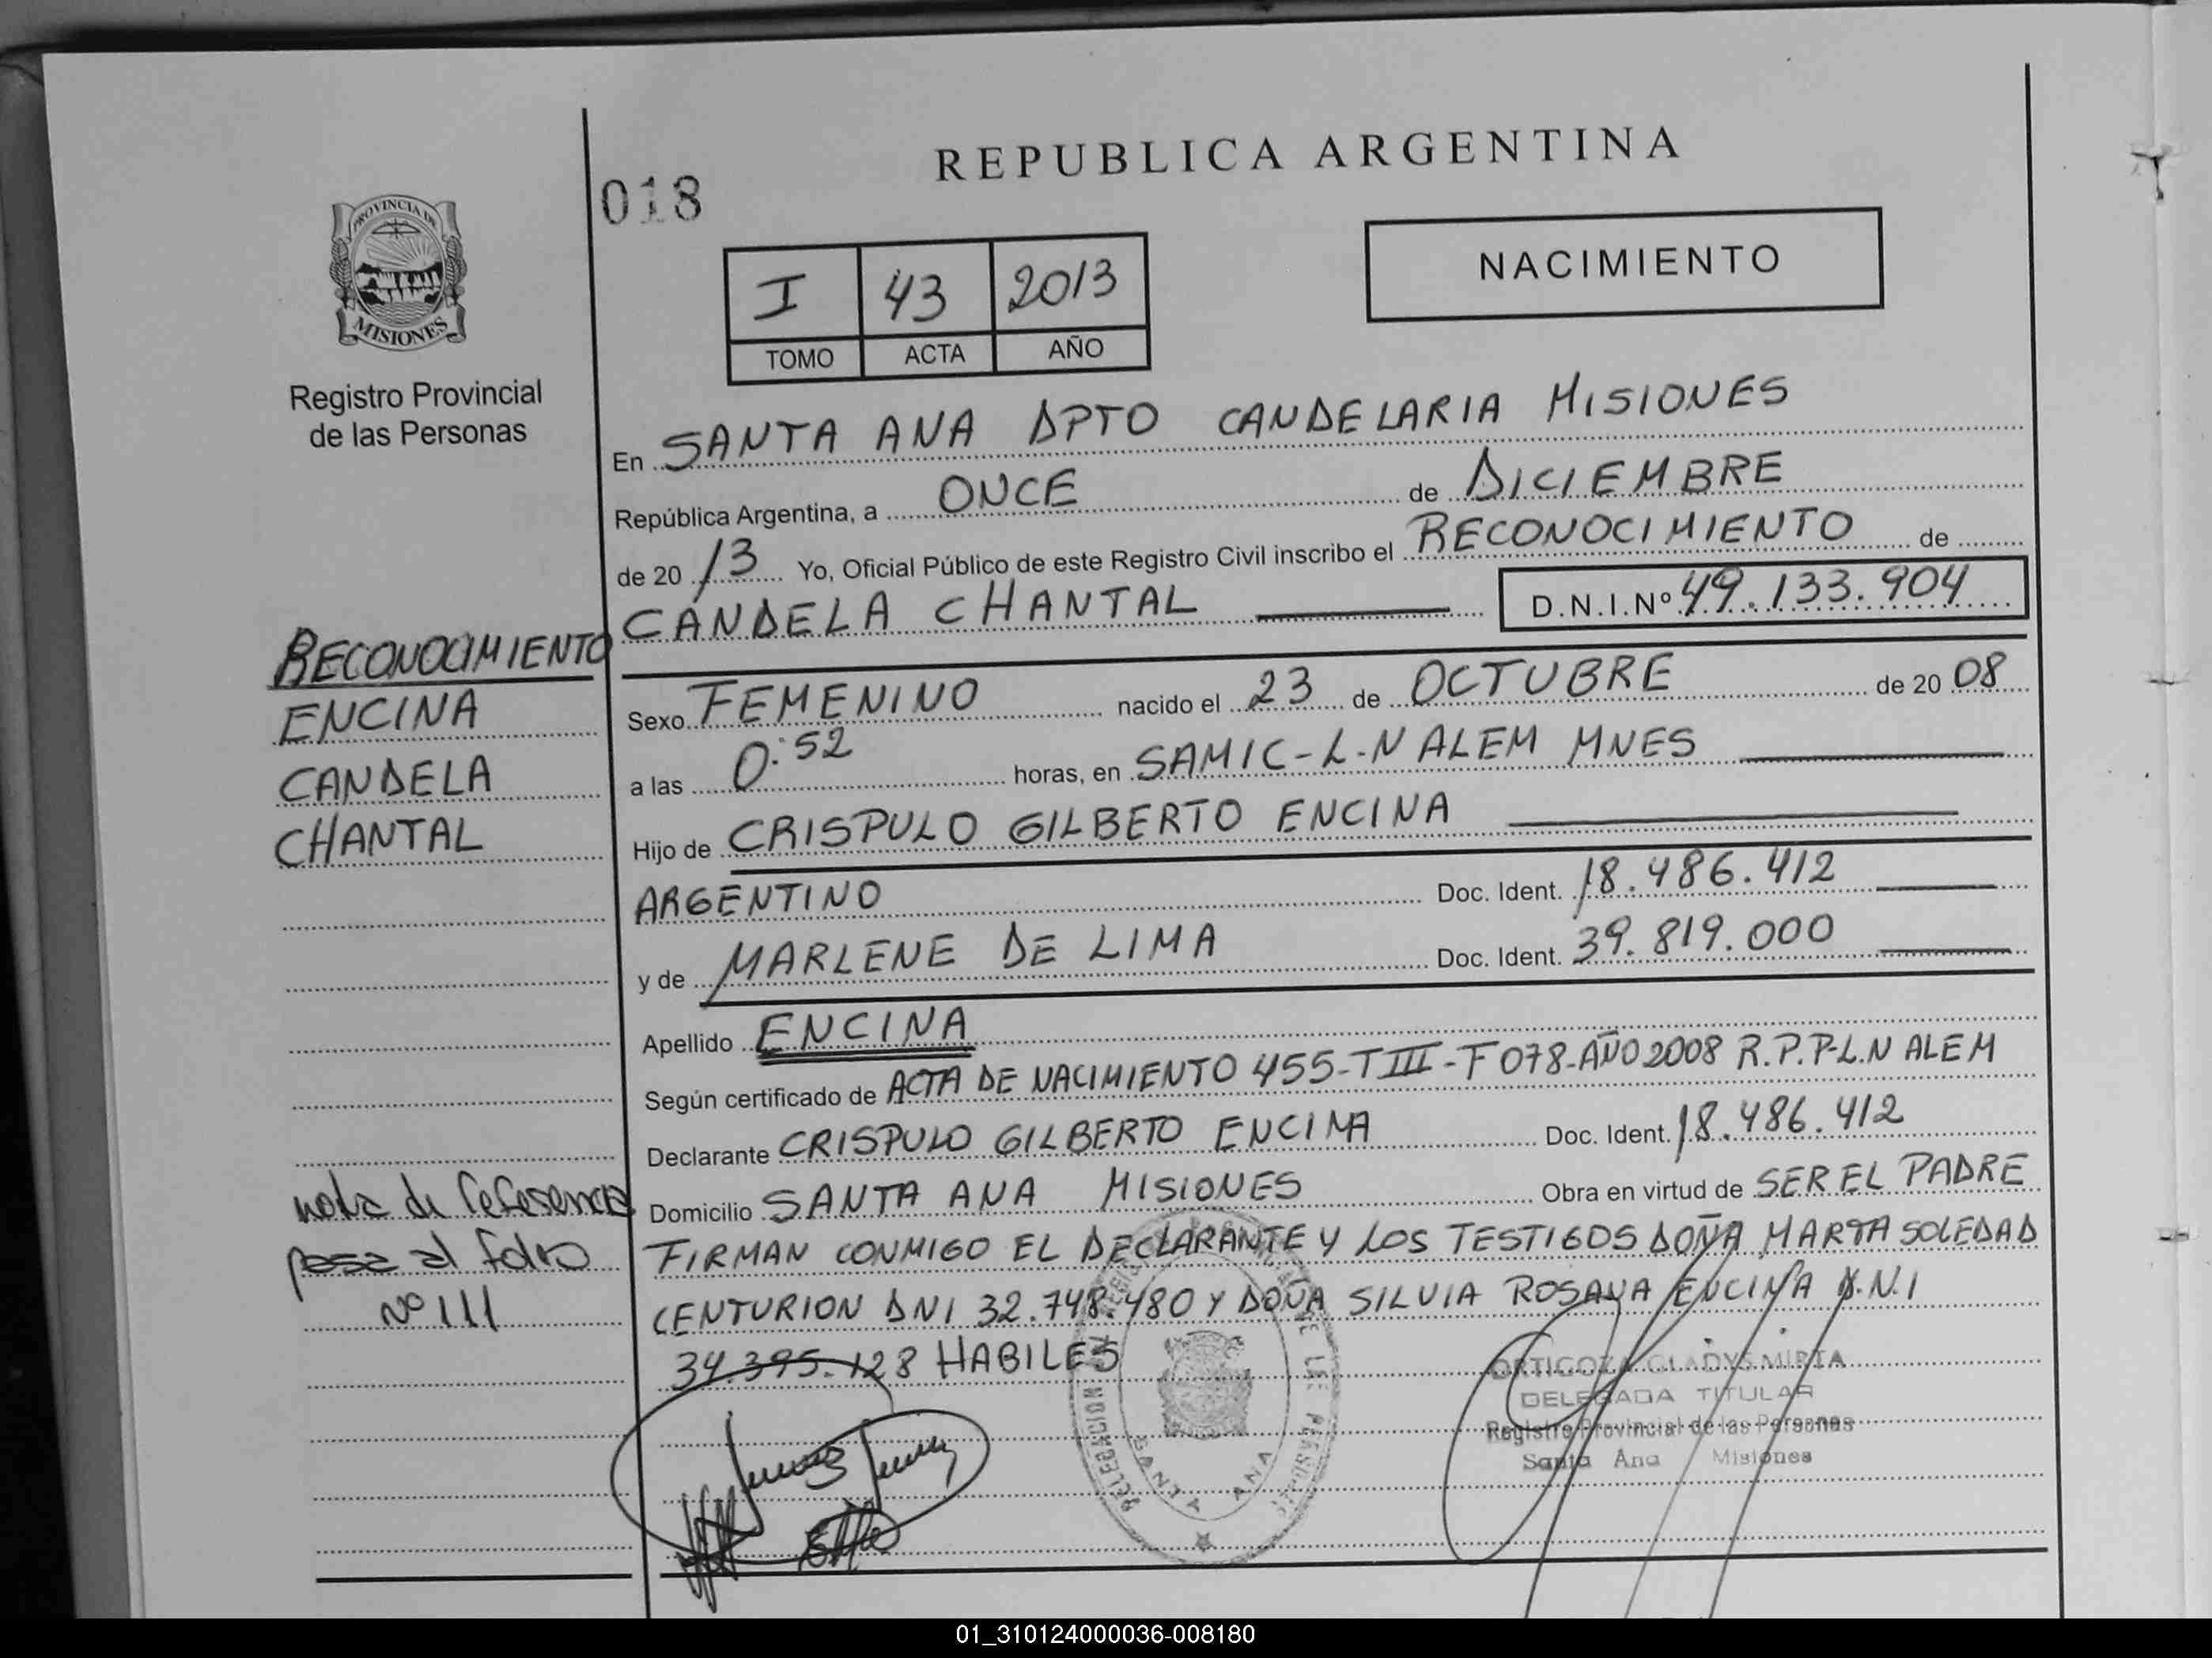 REPUBLICA ARGENTINA
018
PROVINCIA DE
MISIONES
Registro Provincial
de las Personas
I 43 2013
TOMO ACTA AÑO
NACIMIENTO
En SANTA ANA DPTO CANDELARIA MISIONES
República Argentina, a ONCE de DICIEMBRE
de 2013 Yo, Oficial Público de este Registro Civil inscribo el RECONOCIMIENTO de
CANDELA CHANTAL D.N.I.Nº 49.133.904
RECONOCIMIENTO
ENCINA
CANDELA
CHANTAL
Sexo FEMENINO nacido el 23 de OCTUBRE de 2008
a las 0:52 horas, en SAMIC-L-N ALEM MNES
Hijo de CRISPULO GILBERTO ENCINA
ARGENTINO Doc. Ident. 18.486.412
y de MARLENE DE LIMA Doc. Ident. 39.819.000
Apellido ENCINA
Según certificado de ACTA DE NACIMIENTO 455-TIII-F078-AÑO2008 R.P.P-L.N ALEM
Declarante CRISPULO GILBERTO ENCINA Doc. Ident. 18.486.412
Domicilio SANTA ANA MISIONES Obra en virtud de SER EL PADRE
FIRMAN CONMIGO EL DECLARANTE Y LOS TESTIGOS DOÑA MARTA SOLEDAD
CENTURION DNI 32.748.480 Y DOÑA SILVIA ROSANA ENCINA D.N.I
34.395.128 HABILES
nota de referencia
pasa al folio
Nº 111
DELEGACION
SANTA ANA
ORTIGOZA GLADYS MIRTA
DELEGADA TITULAR
Registro Provincial de las Personas
Santa Ana Misiones
01_310124000036-008180